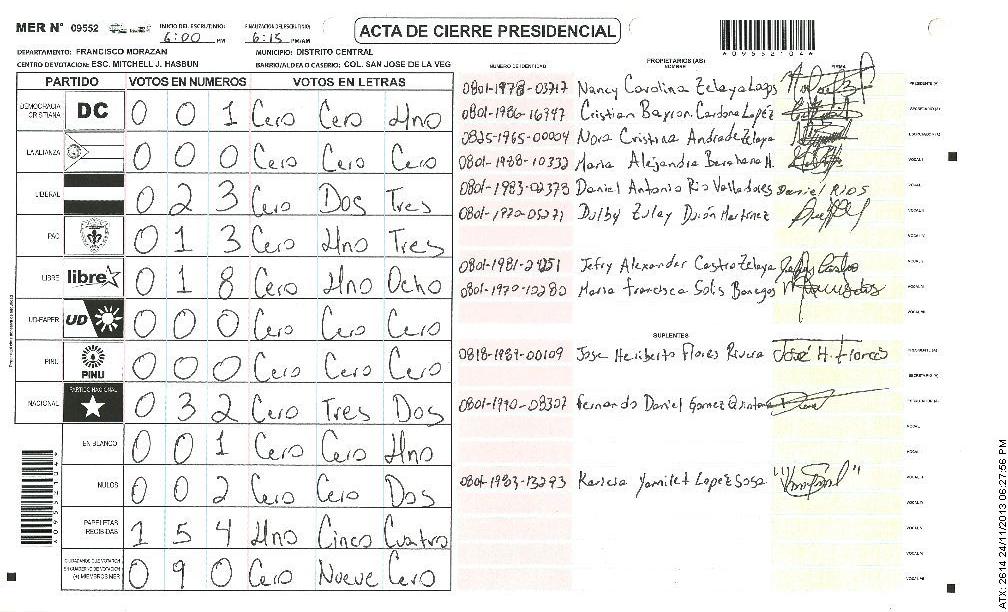 MER Nº 09552
INICIO DEL ESCRUTINIO: 6:00 PM
FINALIZACION DEL ESCRUTINIO: 6:15 PM/AM
ACTA DE CIERRE PRESIDENCIAL
DEPARTAMENTO: FRANCISCO MORAZAN
MUNICIPIO: DISTRITO CENTRAL
CENTRO DE VOTACION: ESC. MITCHELL J. HASBUN
BARRIO/ALDEA O CASERIO: COL. SAN JOSE DE LA VEG
PARTIDO VOTOS EN NUMEROS VOTOS EN LETRAS
DEMOCRACIA CRISTIANA DC 0 0 1 Cero Cero Uno
LA ALIANZA 0 0 0 Cero Cero Cero
LIBERAL 0 2 3 Cero Dos Tres
PAC 0 1 3 Cero Uno Tres
LIBRE libre 0 1 8 Cero Uno Ocho
UD-FAPER UD 0 0 0 Cero Cero Cero
PINU PINU 0 0 0 Cero Cero Cero
NACIONAL PARTIDO NACIONAL 0 3 2 Cero Tres Dos
EN BLANCO 0 0 1 Cero Cero Uno
NULOS 0 0 2 Cero Cero Dos
PAPELETAS RECIBIDAS 1 5 4 Uno Cinco Cuatro
CIUDADANOS QUE VOTARON EN CUADERNO DE VOTACION (+) MIEMBROS MER 0 9 0 Cero Nueve Cero
NUMERO DE IDENTIDAD
PROPIETARIOS (AS)
NOMBRE
FIRMA
0801-1978-03717 Nancy Carolina Zelaya Lagos PRESIDENTE (A)
0801-1986-16397 Cristian Bayron Cardona Lopez SECRETARIO (A)
0825-1965-00004 Nora Cristina Andrade Zelaya ESCRUTADOR (A)
0801-1988-10332 Maria Alejandra H. VOCAL I
0801-1983-02373 Daniel Antonio Rio Valladares Daniel RIOS
0801-1970-05271 Dulby Zulay Martinez
0801-1981-24251 Jefry Alexander Castro Zelaya
0801-1970-10280 Maria Francisca Solis Banegas
SUPLENTES
0818-1987-00109 Jose Heriberto Flores Rivera José H. Flores PRESIDENTE (A)
SECRETARIO (A)
0801-1990-08307 Fernando Daniel Gomez Quintana ESCRUTADOR (A)
0801-1983-13293 Karicia Yamilet Lopez Sosa
A09552104
ATX: 2614 24/11/2013 06:27:56 PM